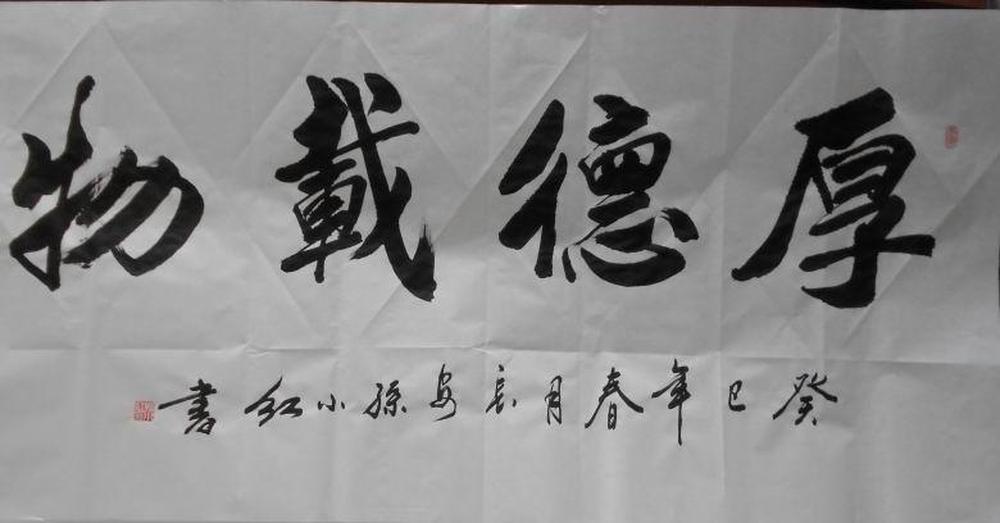 厚德載物
癸巳年春月長安孫小紅書